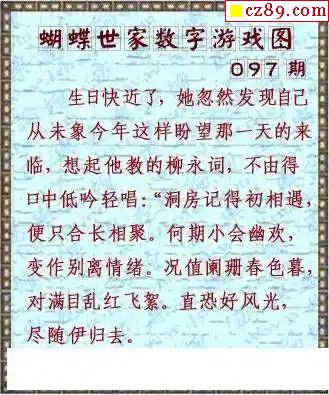 cz89.com
蝴蝶世家数字游戏图
097期
生日快近了，她忽然发现自己
从未象今年这样盼望那一天的来
临，想起他教的柳永词，不由得
口中低吟轻唱：“洞房记得初相遇，
便只合长相聚。何期小会幽欢，
变作别离情绪。况值阑珊春色暮，
对满目乱红飞絮。直恐好风光，
尽随伊归去。